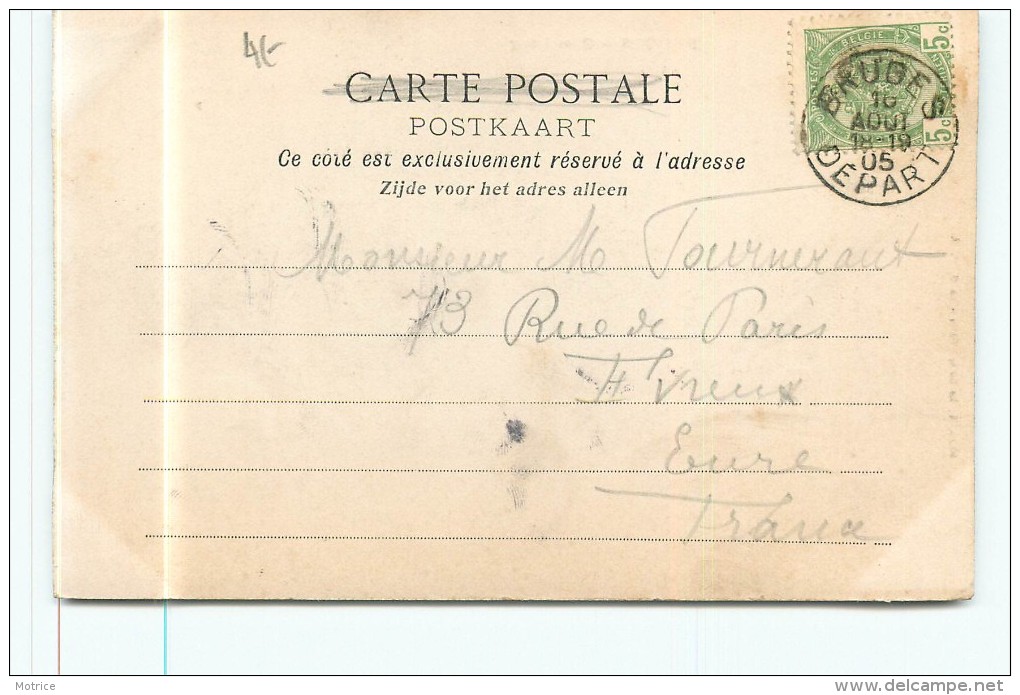 4€
CARTE POSTALE
POSTKAART
Ce coté est exclusivement réservé à l'adresse
Zijde voor het adres alleen
BELGIE
5c
5c
BRUGES
16
AOUT
18-19
05
DEPART
Monsieur M Tournerant
73 Rue de Paris
Evreux
Eure
France
Motrice
www.delcampe.net